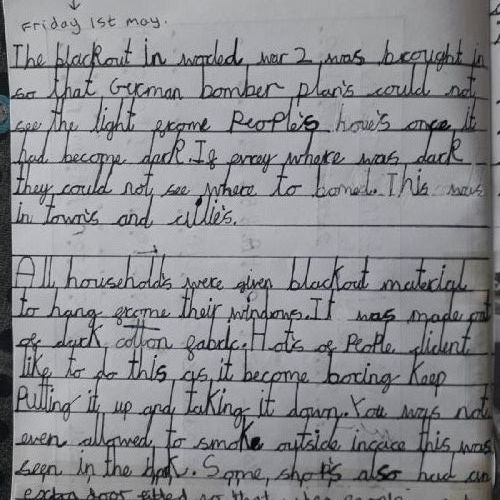 Friday 1st may.
The blackout in worled war 2 was brought in
so that German bomber plan's could not
see the light frome PeoPle's howe's once it
had become dark. If evrey where was dark
they could not see where to bomed. This was
in town's and citties.
All household's were given blackout material
to hang frome their windows. It was made out
of dark cotton fabric. Hot's of PeoPle dident
like to do this as it become boring Keep
Putting it up and taking it down. You was not
even allowed to smoke outside incace this was
seen in the dark. Some shop's also had an
extra door fitted so that when people